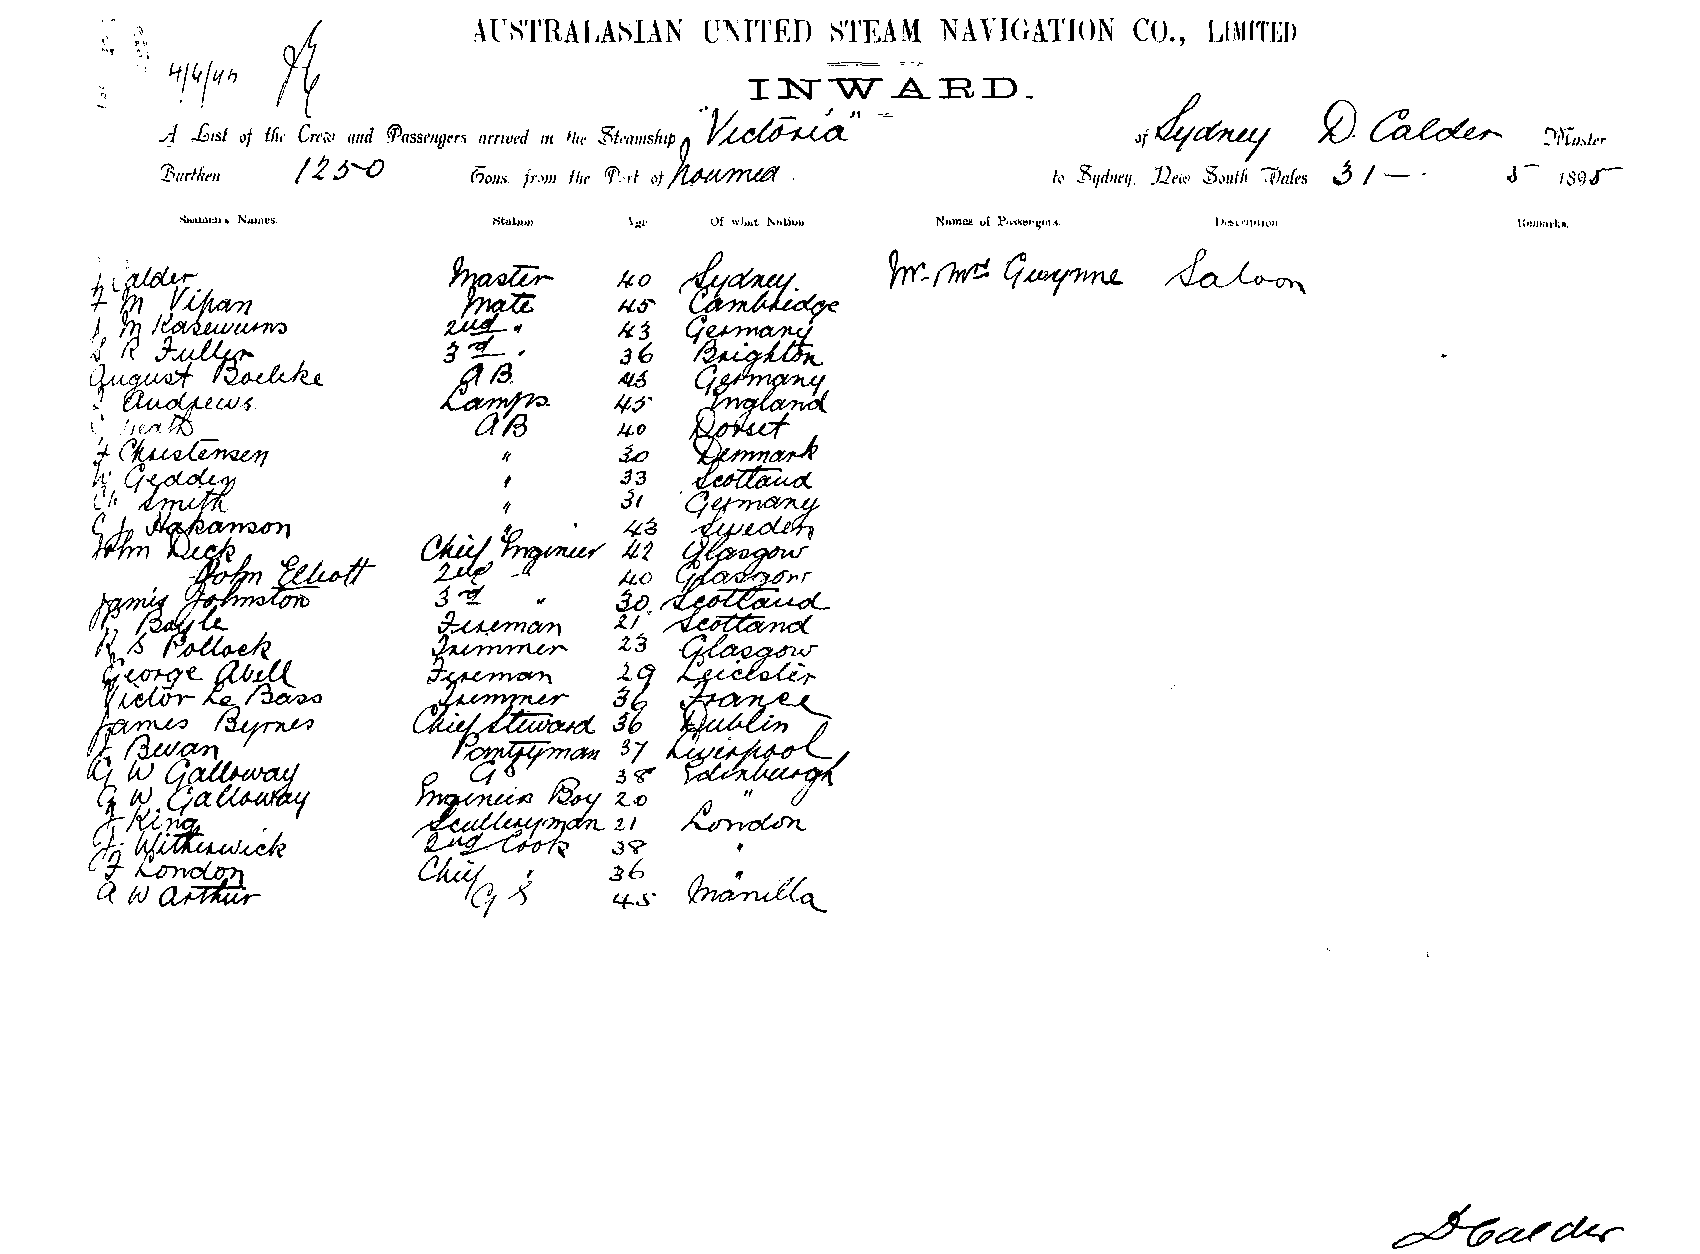 AUSTRALASIAN UNITED STEAM NAVIGATION CO., LIMITED
INWARD.
A List of the Crew and Passengers arrived in the Steamship "Victoria" of Sydney D. Calder Master
Burthen 1250 Tons from the Port of Noumea to Sydney, New South Wales 31 — 5 1895
Seamen's Names. Station Age Of what Nation Names of Passengers. Description Remarks.
Calder Master 40 Sydney. Mr. Mrs Gwynne Saloon
F M Vipan Mate 45 Cambridge
M 2nd " 43 Germany
R Fuller 3rd " 36 Brighton
August Boehke A B. 43 Germany
Andrews Lamps. 45 England
Heath A B 40 Dorset
F Christensen " 30 Denmark
W Geddes " 33 Scotland
Smith " 31 Germany
Hakanson " 43 Sweden
John Dick Chief Engineer 42 Glasgow
John Elliott 2nd " 40 Glasgow
James Johnston 3rd " 30. Scotland
Boyle Fireman 21 Scotland
R S Pollock Trimmer 23 Glasgow
George Abell Fireman 29 Leicester
Victor Le Bass Trimmer 36 France
James Byrnes Chief Steward 36 Dublin
F Bevan Pantryman 37 Liverpool
G W Galloway G S 38 Edinburgh
G W Galloway Engineers Boy 20 "
J King Sculleryman 21 London
J. Witherwick 2nd Cook 38 "
F London Chief " 36 "
A W Arthur G S 45 Manilla
D Calder